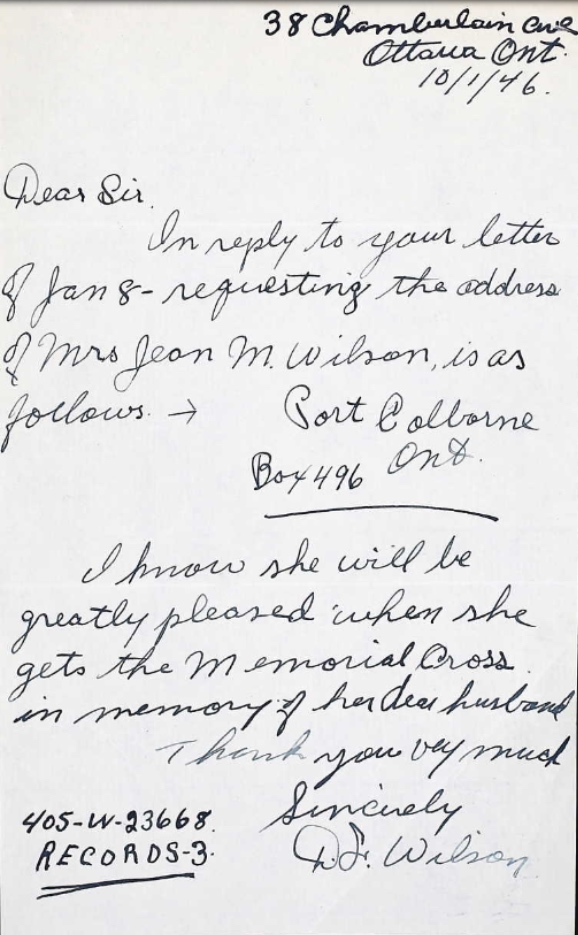 38 Chamberlain Ave
Ottawa Ont.
10/1/46.
Dear Sir.
In reply to your letter
of Jan 8 - requesting the address
of Mrs Jean M. Wilson, is as
follows. → Port Colborne
Box 496 Ont.
I know she will be
greatly pleased when she
gets the Memorial Cross
in memory of her dear husband
Thank you vey much
Sincerely
D.F. Wilson
405-W-23668.
RECORDS-3.